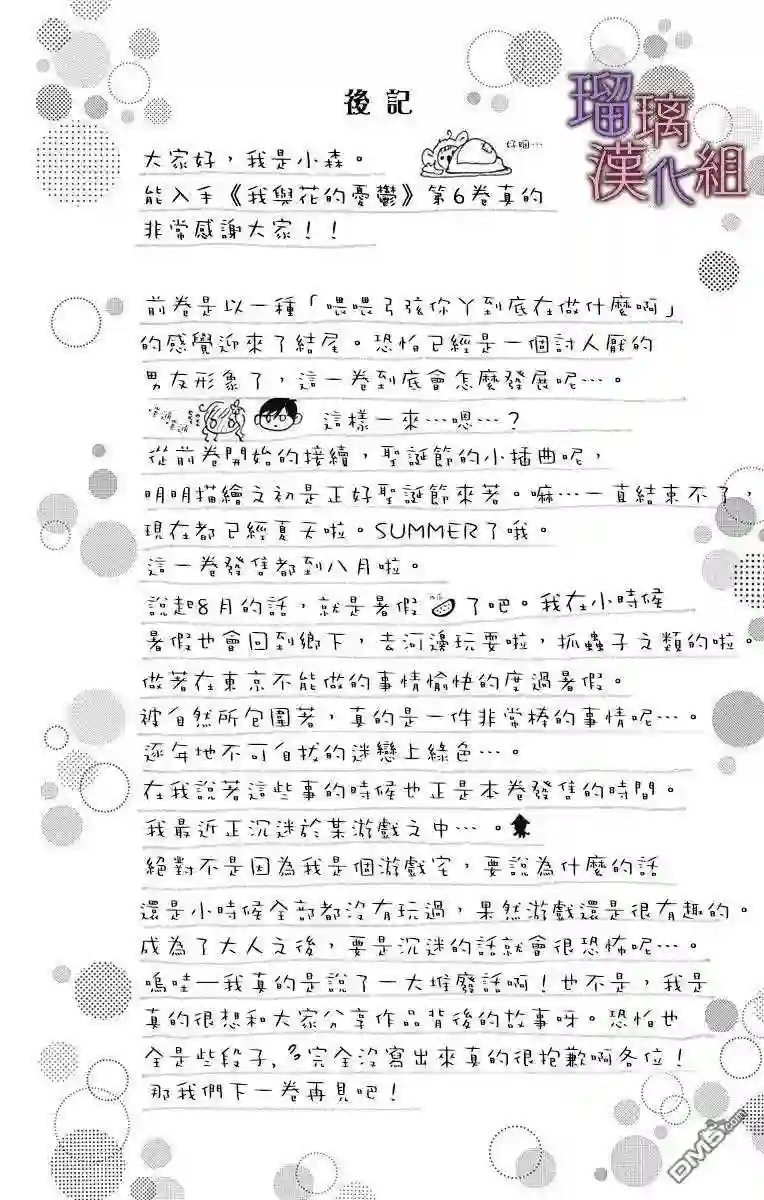 後記
瑠璃
漢化組
好睏…
大家好，我是小森。
能入手《我與花的憂鬱》第6卷真的
非常感謝大家！！
前卷是以一種「喂喂弓弦你丫到底在做什麼啊」
的感覺迎來了結尾。恐怕已經是一個討人厭的
男友形象了，這一卷到底會怎麼發展呢…。
這樣一來…嗯…？
從前卷開始的接續，聖誕節的小插曲呢，
明明描繪之初是正好聖誕節來著。嘛…一直結束不了，
現在都已經夏天啦。SUMMER了哦。
這一卷發售都到八月啦。
說起8月的話，就是暑假了吧。我在小時候
暑假也會回到鄉下，去河邊玩耍啦，抓蟲子之類的啦。
做著在東京不能做的事情愉快的度過暑假。
被自然所包圍著，真的是一件非常棒的事情呢…。
逐年地不可自拔的迷戀上綠色…。
在我說著這些事的時候也正是本卷發售的時間。
我最近正沉迷於某游戲之中…。
絕對不是因為我是個游戲宅，要說為什麼的話
還是小時候全部都沒有玩過，果然游戲還是很有趣的。
成為了大人之後，要是沉迷的話就會很恐怖呢…。
嗚哇—我真的是說了一大堆廢話啊！也不是，我是
真的很想和大家分享作品背後的故事呀。恐怕也
全是些段子，完全沒寫出來真的很抱歉啊各位！
那我們下一卷再見吧！
DM5.com